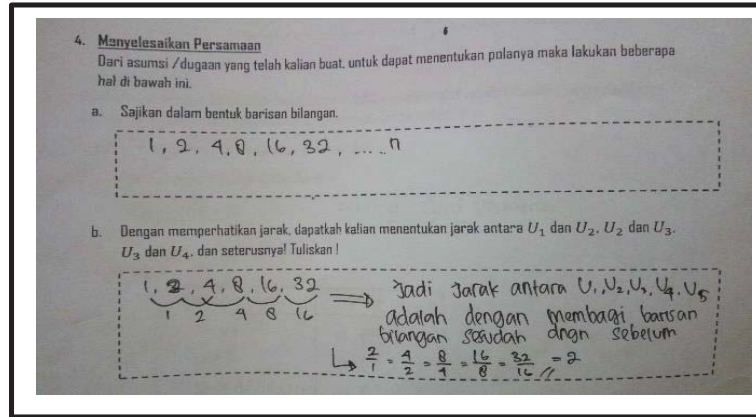 4. Menyelesaikan Persamaan
Dari asumsi /dugaan yang telah kalian buat, untuk dapat menentukan polanya maka lakukan beberapa
hal di bawah ini.
a. Sajikan dalam bentuk barisan bilangan.
1, 2, 4, 8, 16, 32, ..... n
b. Dengan memperhatikan jarak, dapatkah kalian menentukan jarak antara U₁ dan U₂, U₂ dan U₃,
U₃ dan U₄, dan seterusnya! Tuliskan !
1, 2, 4, 8, 16, 32
1 2 4 8 16
⇒ Jadi Jarak antara U₁, U₂, U₃, U₄, U₅
adalah dengan membagi barisan
bilangan sesudah dngn sebelum
↳ 2/1 = 4/2 = 8/4 = 16/8 = 32/16 = 2 //